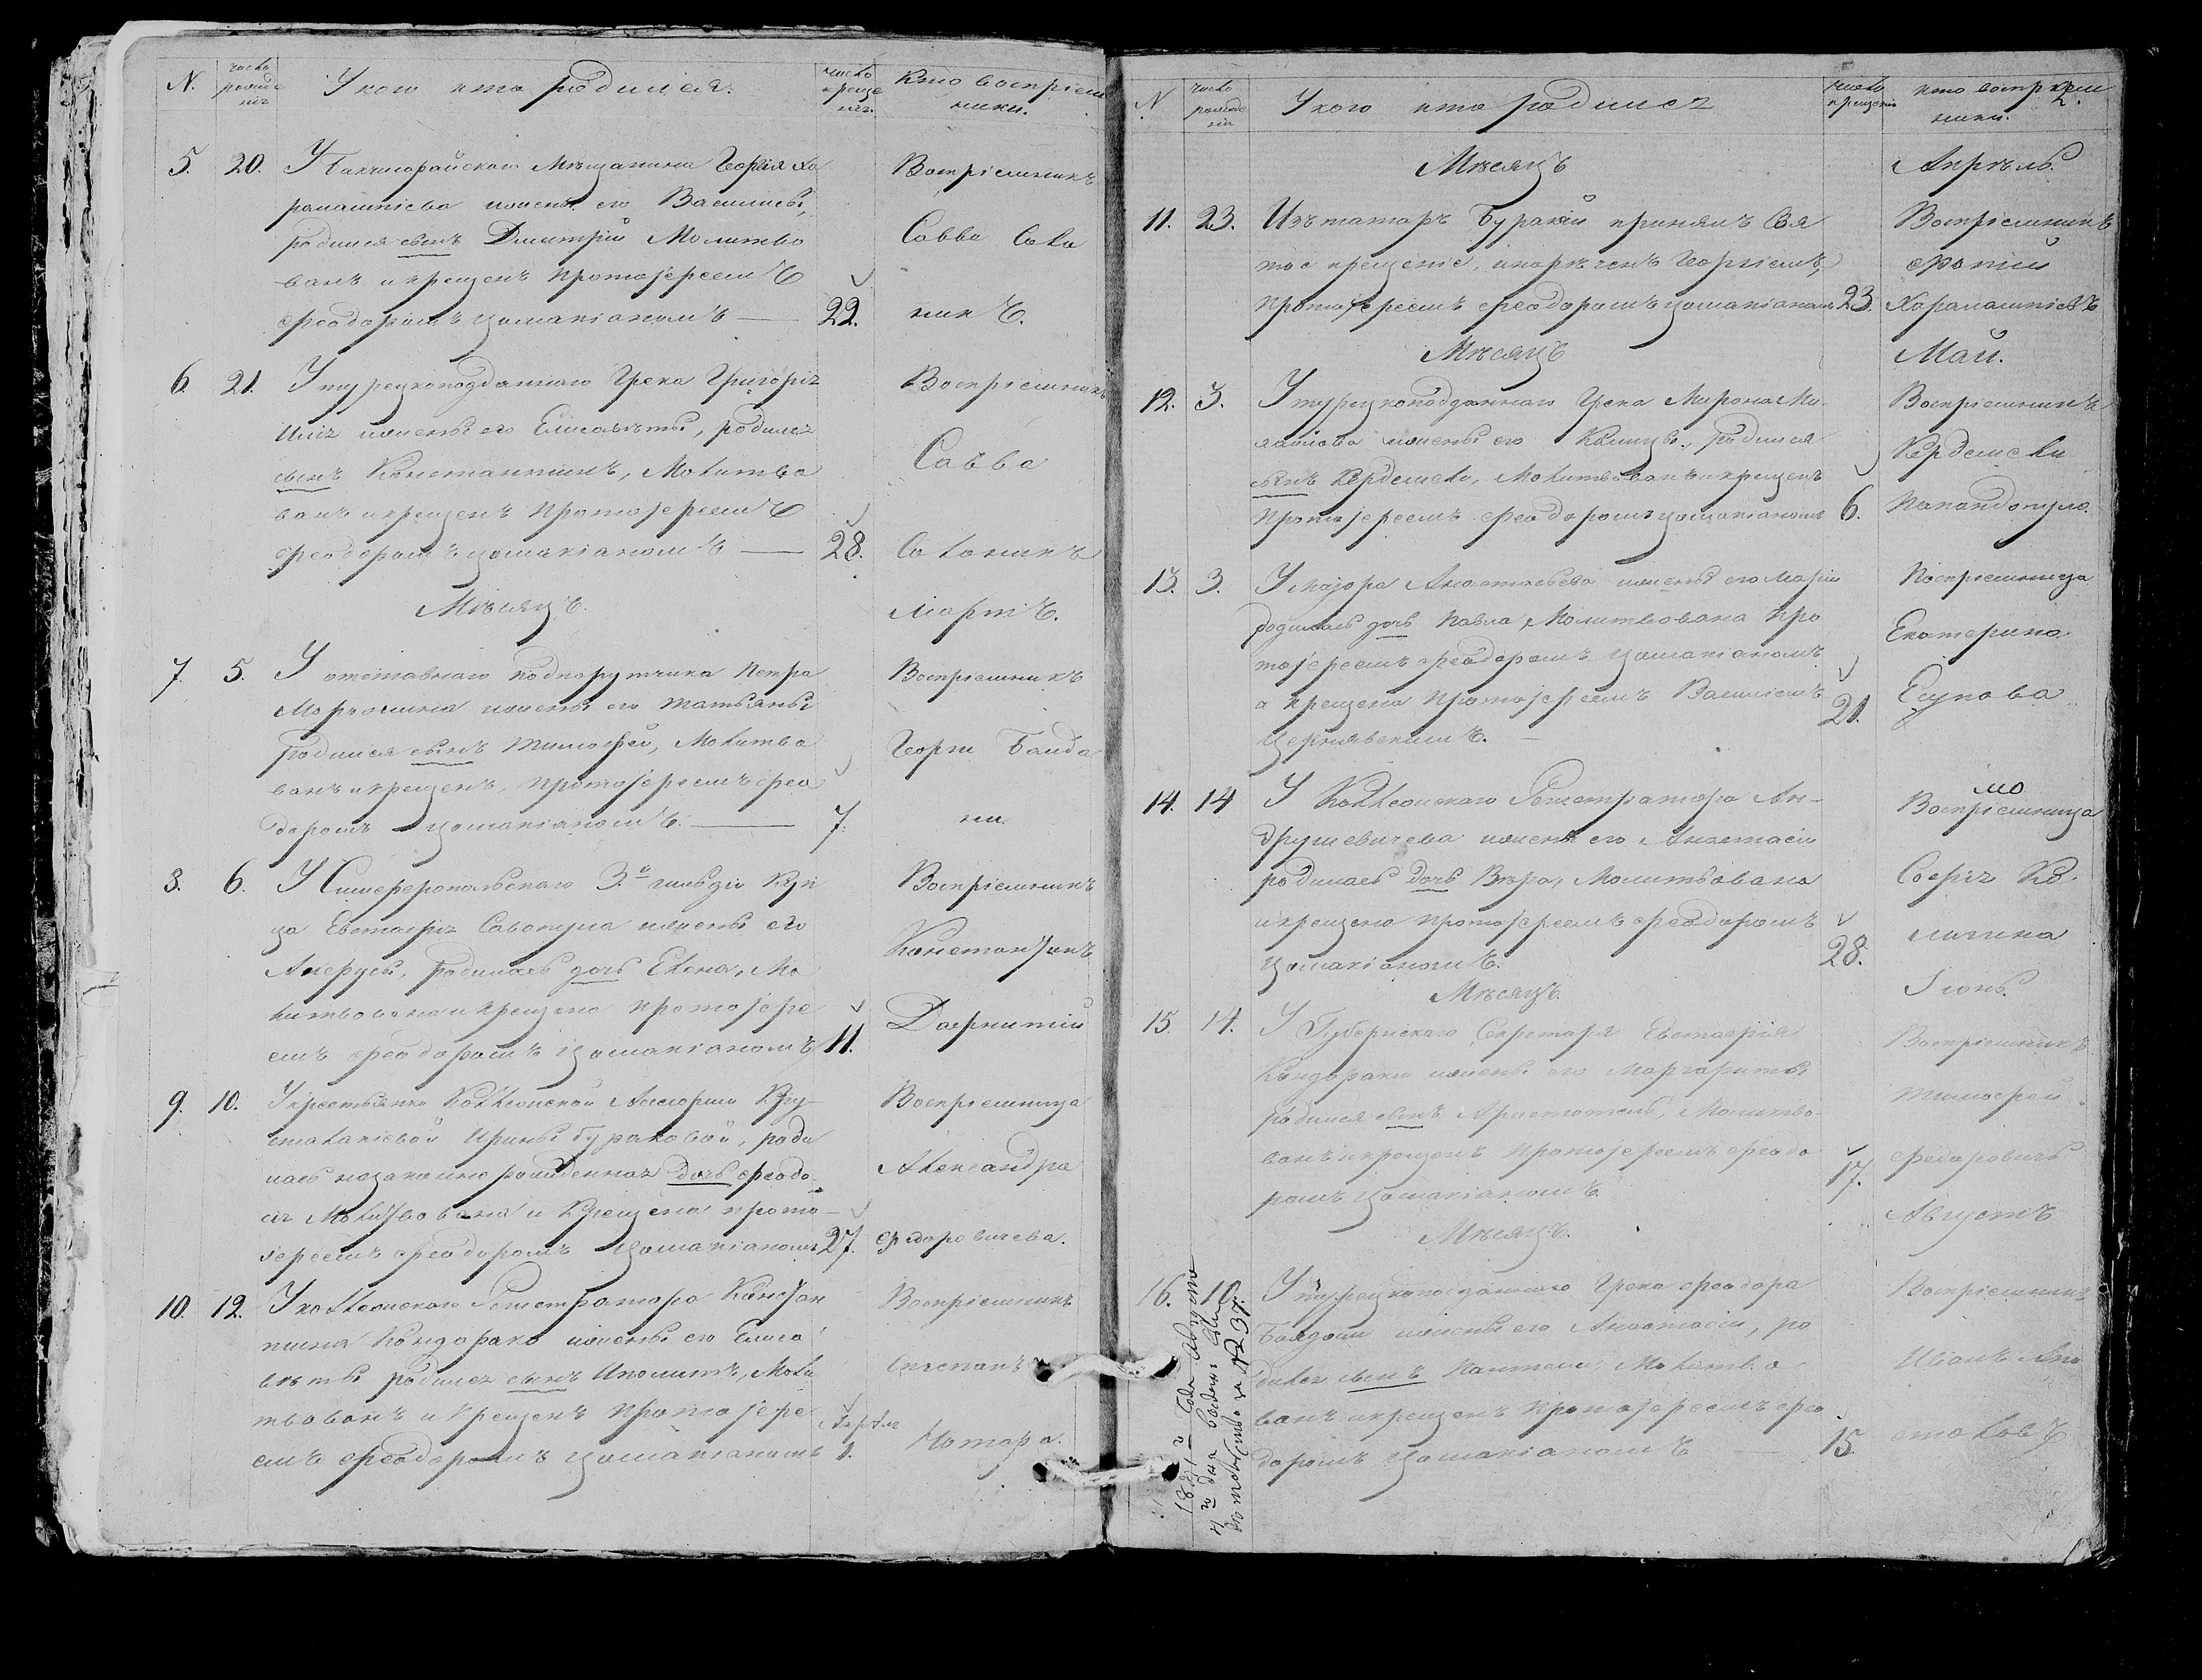 N. число рожде нія У кого кто родился. число креще нія. Кто воспріем ники.
5. 20. У Бахчисарайскаго Мѣщанина Георгія Ха
ралампіева жены его Василисы,
родился сынъ Дмитрій Молитво
ванъ и крещенъ Протоіереемъ
Ѳеодоромъ Цомакіономъ — 22.
Воспріемникъ
Савва
6. 21. У турецкоподданнаго Грека Григорія
Иліи жены его Елисаветы, родился
сынъ Константинъ, Молитво
ванъ и крещенъ Протоіереемъ
Ѳеодоромъ Цомакіономъ — 28.
Воспріемникъ
Савва
Мѣсяцъ. Мартъ.
7. 5. У отставнаго подпорутчика Петра
жены его Татьяны
родился сынъ Тимофей, Молитво
ванъ и крещенъ, Протоіереемъ Ѳео
доромъ Цомакіономъ. — 7.
Воспріемникъ
Георги
8. 6. У Симферопольскаго 3й гильдіи Куп
ца Евстафія жены его
родилась дочь Елена, Мо
литвована и крещена протоіере
емъ Ѳеодоромъ Цомакіономъ 11.
Воспріемникъ
Константинъ
9. 10. У крестьянки Коллежской Ассесорши
Ирины Бураковой, роди
лась незаконно рожденная дочь Ѳеодо
ія Молитвована и Крещена прото
іереемъ Ѳеодоромъ Цомакіономъ 27.
Воспріемница
Александра
Федоровичева.
10. 12. У коллежскаго Регистратора Констан
тина Кондораки жены его Елиса
веты родился сынъ Иполитъ, Моли
твованъ и Крещенъ Протоіере
емъ Ѳеодоромъ Цомакіономъ 1.
Воспріемникъ
Нотара.
N число рожде нія У кого кто родился число крещенія кто воспріем ники. 2.
Мѣсяцъ Апрѣль.
11. 23. Изъ татаръ принялъ Свя
тое крещеніе, и нареченъ Георгіемъ,
Протоіереемъ Ѳеодоромъ Цомакіономъ 23.
Воспріемникъ
Харалампіевъ
Мѣсяцъ Май.
12. 3. У турецкоподданнаго Грека Мирона Ми
хайлова жены его родился
сынъ Молитвованъ и крещенъ
Протоіереемъ Ѳеодоромъ Цомакіономъ 6.
Воспріемникъ
Папандопуло.
13. 3. У Маіора Анастасьева жены его Маріи
родилась дочь Павла, Молитвована Про
тоіереемъ Ѳеодоромъ Цомакіономъ
а крещена Протоіереемъ Василіемъ
Чернявскимъ. — 21.
Воспріемница
Екатерина
14. 14 У Коллежскаго Регистратора Ан-
друшевичева жены его Анастасіи
родилась дочь Вѣра, Молитвована
и крещена Протоіереемъ Ѳеодоромъ
Цомакіономъ. 28.
Воспріемница
Софія
Мѣсяцъ. Іюнь.
15. 14. У Губернскаго Секретаря Евстафія
Кондораки жены его Маргариты
родился сынъ Аристотель, Молитво
ванъ и крещенъ Протоіереемъ Ѳеодо
ромъ Цомакіономъ. 17.
Воспріемникъ
Тимофей
Федоровичъ
Мѣсяцъ. Августъ
16. 10. У турецкоподданнаго Грека Ѳеодора
жены его Анастасіи, ро
дился сынъ Пантели, Молитво
ванъ и крещенъ Протоіереемъ Ѳео
доромъ Цомакіономъ — 15.
Воспріемникъ
Иванъ Апо
столовъ
года Августа
дня
за №237.